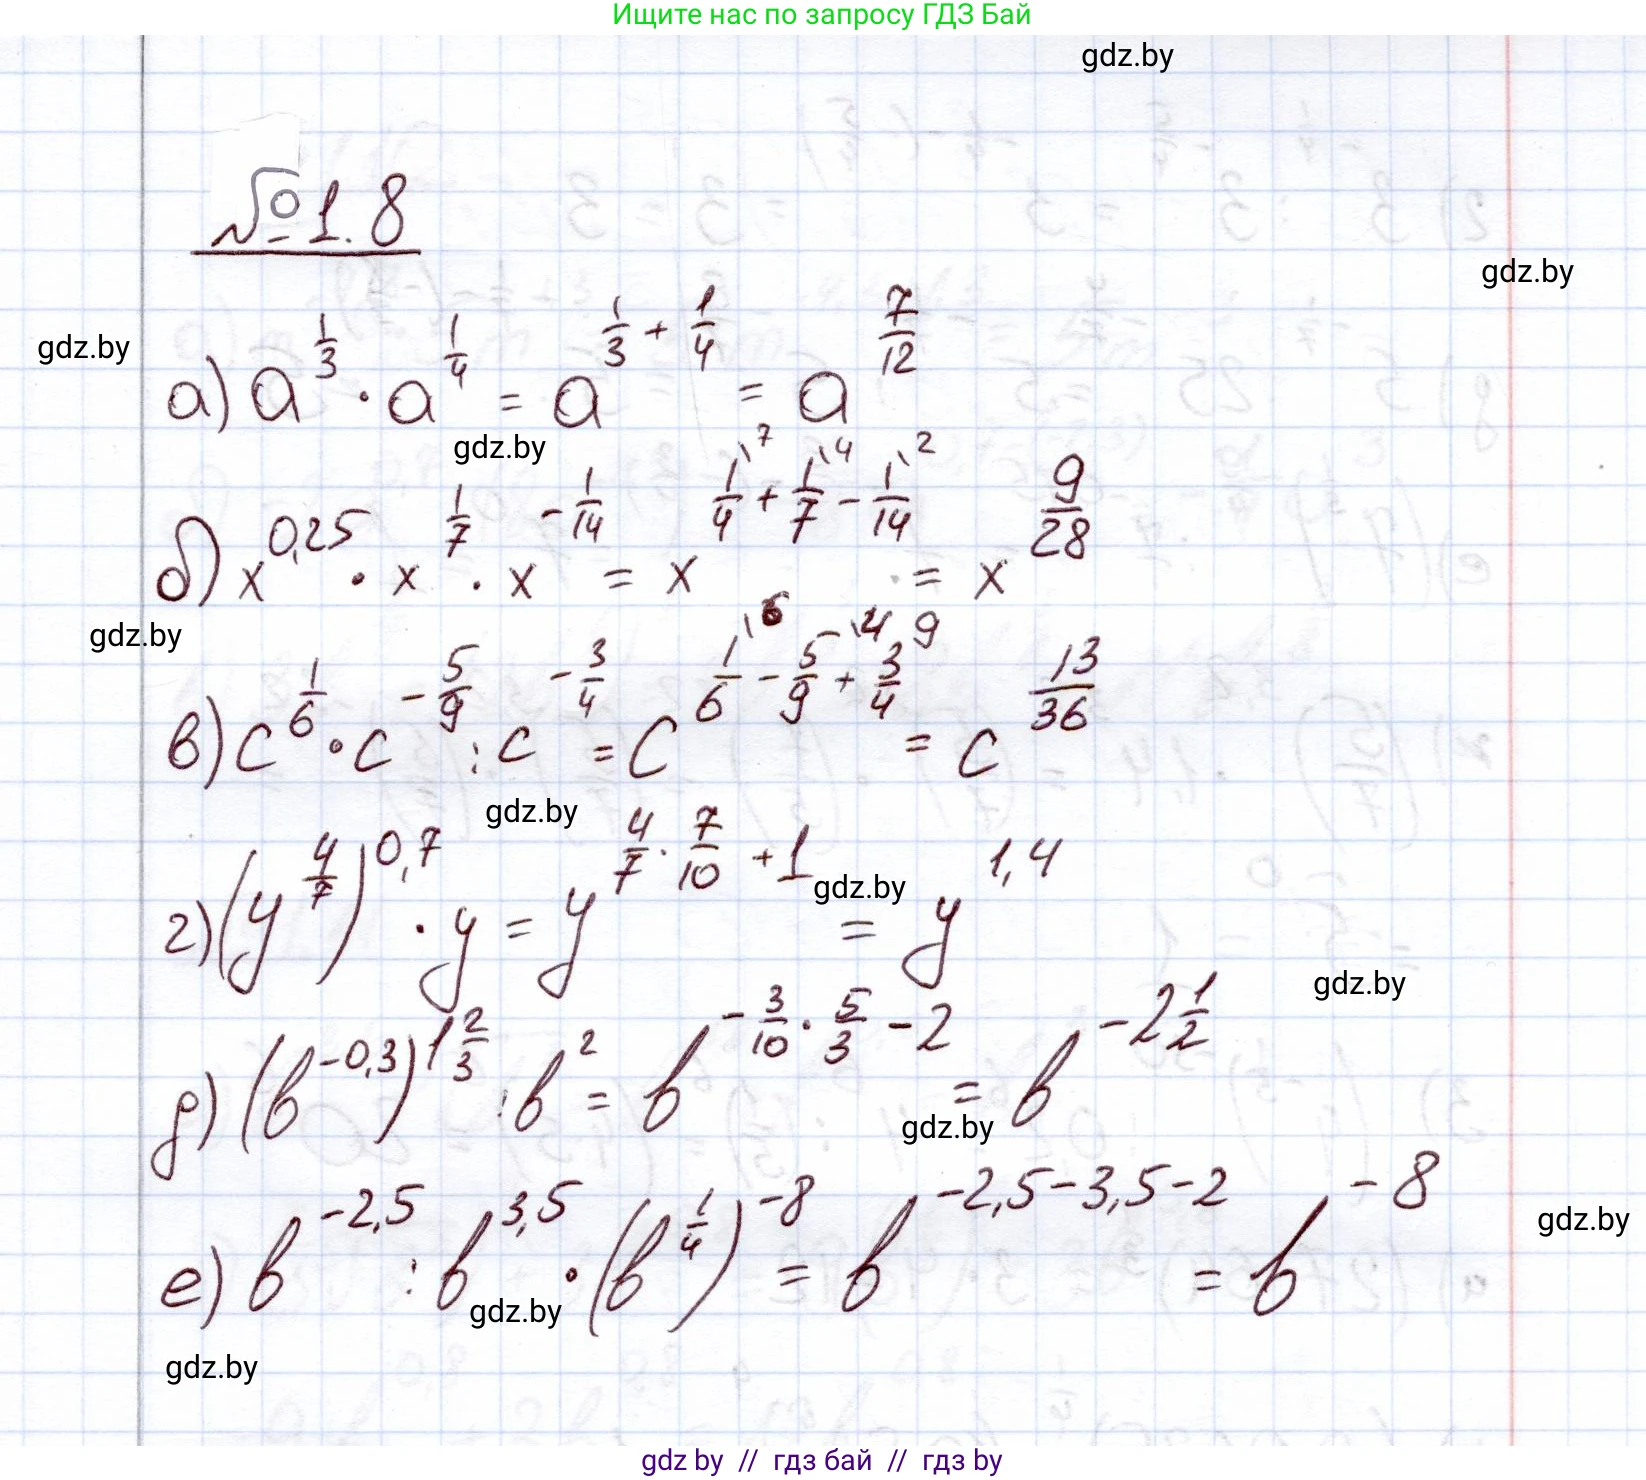 Ищите нас по запросу ГДЗ Бай
gdz.by
№ 1.8
gdz.by
gdz.by
а) a^{1/3} · a^{1/4} = a^{1/3 + 1/4} = a^{7/12}
gdz.by
б) x^{0,25} · x^{1/7} · x^{-1/14} = x^{1/4\7 + 1/7\4 - 1/14\2} = x^{9/28}
gdz.by
в) c^{1/6} · c^{-5/9} : c^{-3/4} = c^{1/6\6 - 5/9\4 + 3/4\9} = c^{13/36}
gdz.by
г) (y^{4/7})^{0,7} · y = y^{4/7 · 7/10 + 1} = y^{1,4}
gdz.by
gdz.by
д) (b^{-0,3})^{1 2/3} : b^2 = b^{-3/10 · 5/3 - 2} = b^{-2 1/2}
gdz.by
е) b^{-2,5} : b^{3,5} · (b^{1/4})^{-8} = b^{-2,5-3,5-2} = b^{-8}
gdz.by
gdz.by
gdz.by
gdz by // гдз бай // гдз by